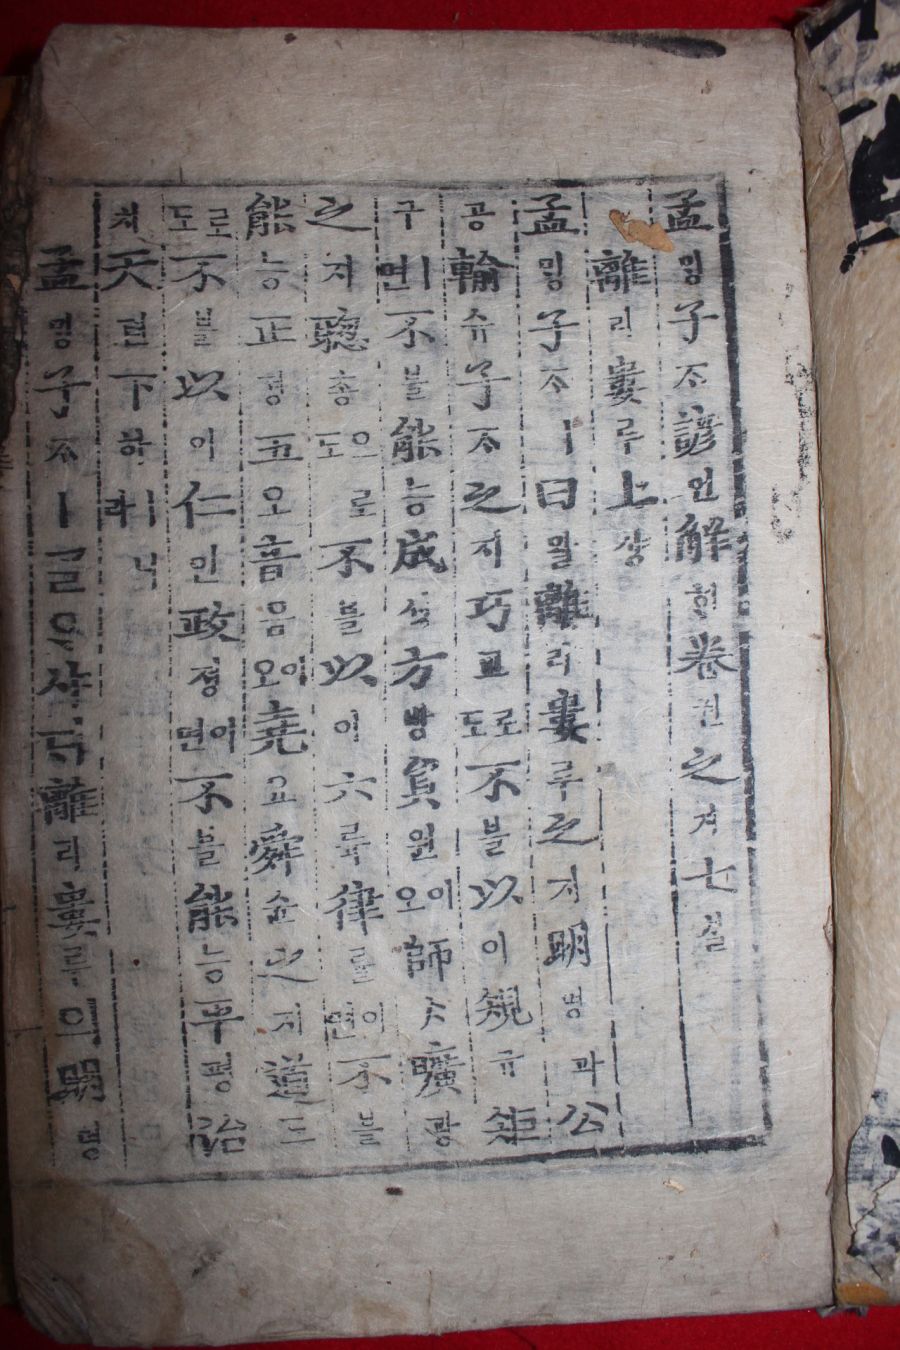 孟밍子ᄌᆞ諺언解ᄒᆡ卷권之지七칠
離리婁루上샹
孟밍子ᄌᆞㅣ曰왈離리婁루之지明명과公
공輸슈子ᄌᆞ之지巧교로도不블以이規규矩
구ㅣ면不블能능成셩方방員원이오師ᄉᆞ曠광
之지聰총으로도不블以이六륙律률이면不블
能능正졍五오音음이오堯요舜슌之지道도
로도不블以이仁인政졍이면不블能능平평治
치天텬下하ㅣ니라
孟밍子ᄌᆞㅣᄀᆞᆯᄋᆞ샤ᄃᆡ離리婁루의明명